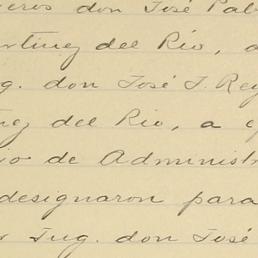 eros don José Pab
rtínez del Río, a
g. don José J. Rey
nez del Río, a q
io de Administr
designaron para
r Ing. don José